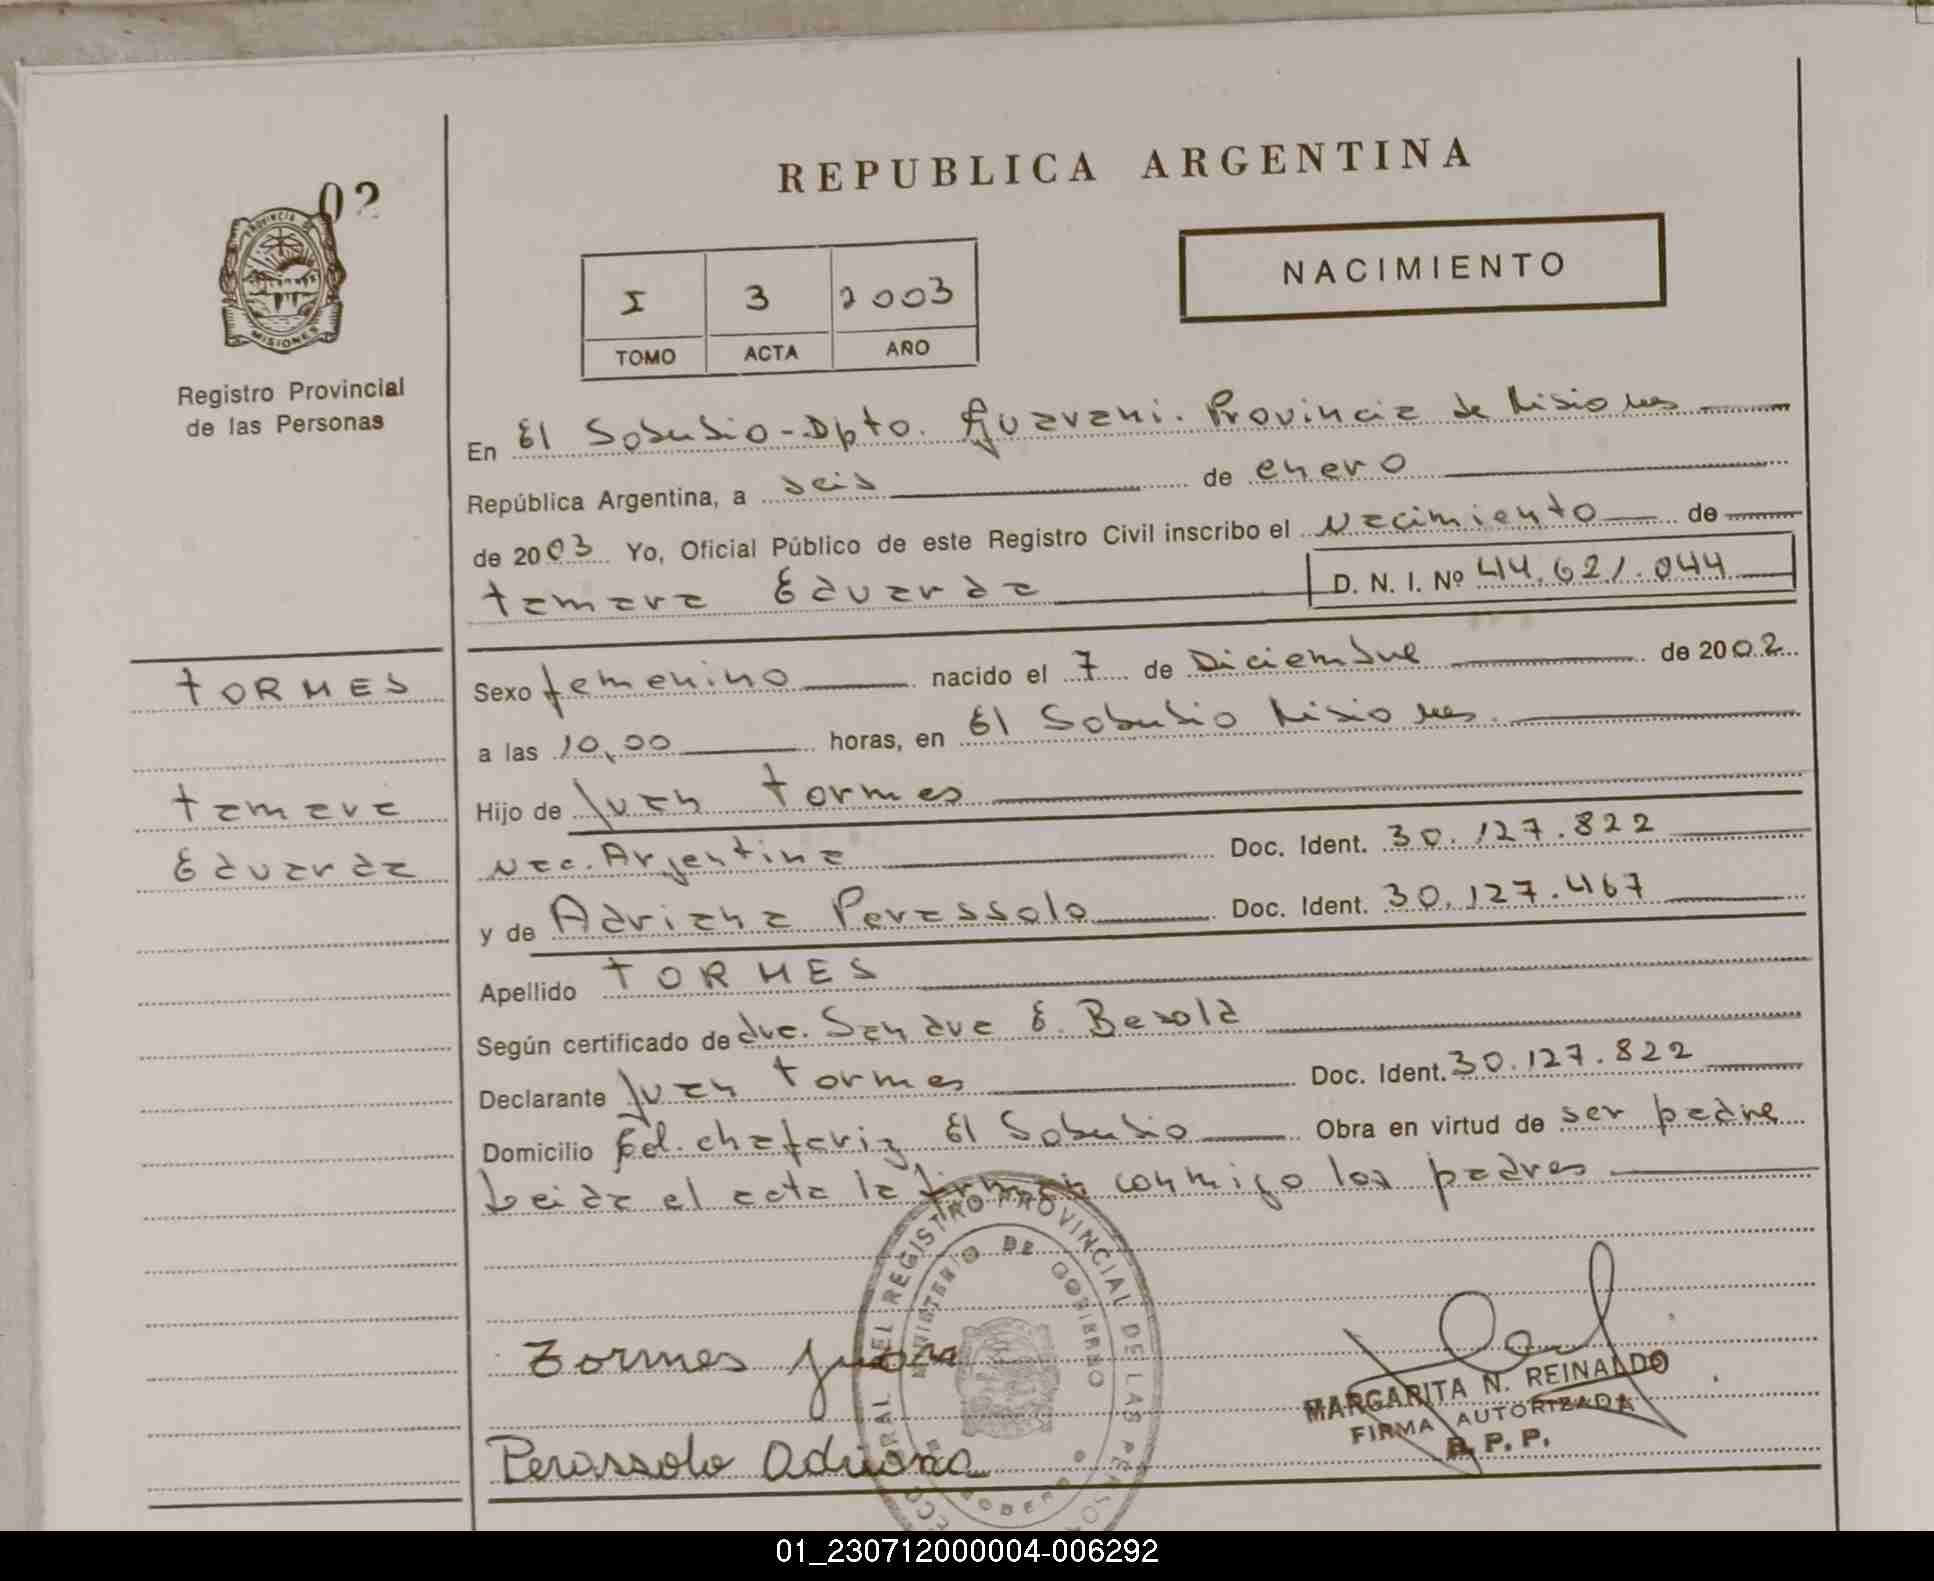 REPUBLICA ARGENTINA
02
PROVINCIA DE
MISIONES
Registro Provincial
de las Personas
I 3 2003
TOMO ACTA AÑO
NACIMIENTO
En El Soberbio - Dpto. Guarani. Provincia de Misiones
República Argentina, a seis de enero
de 2003 Yo, Oficial Público de este Registro Civil inscribo el Nacimiento de
tamara Eduarda D. N. I. Nº 44.621.044
TORMES
tamara
Eduarda
Sexo femenino nacido el 7 de Diciembre de 2002
a las 10,00 horas, en El Soberbio Misiones.
Hijo de Juan tormes
Nac. Argentina Doc. Ident. 30.127.822
y de Adriana Perassolo Doc. Ident. 30.127.467
Apellido TORMES
Según certificado de dra. Sandra E. Bezold
Declarante Juan tormes Doc. Ident. 30.127.822
Domicilio Col. chafariz El Soberbio Obra en virtud de ser padre
Leida el acta la firman conmigo los padres
REGISTRO PROVINCIAL DE LAS
MINISTERIO DE GOBIERNO
Tormes Juan
Perassolo Adriana
MARGARITA N. REINALDO
FIRMA AUTORIZADA
R. P. P.
01_230712000004-006292